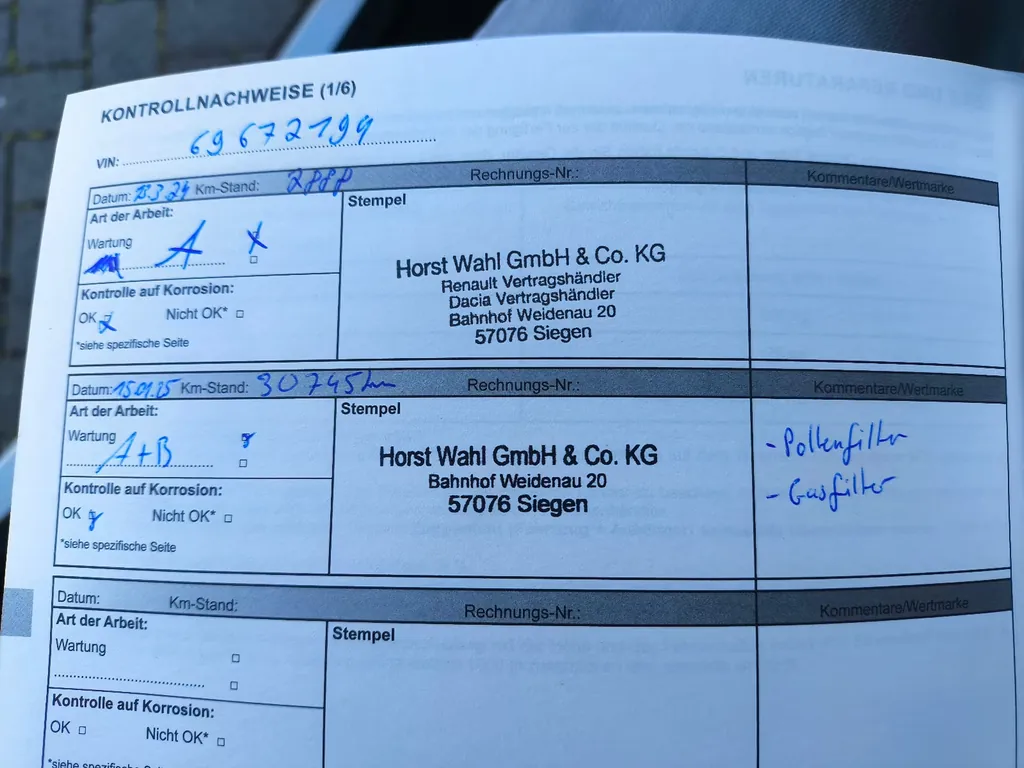 KONTROLLNACHWEISE (1/6)
VIN: 69672199
Datum: Km-Stand: Rechnungs-Nr.: Kommentare/Wertmarke
Art der Arbeit:
Wartung A
Kontrolle auf Korrosion:
OK Nicht OK*
*siehe spezifische Seite
Stempel
Horst Wahl GmbH & Co. KG
Renault Vertragshändler
Dacia Vertragshändler
Bahnhof Weidenau 20
57076 Siegen
Datum: 15.01.25 Km-Stand: 30745km Rechnungs-Nr.: Kommentare/Wertmarke
Art der Arbeit:
Wartung
A+B
Kontrolle auf Korrosion:
OK Nicht OK*
*siehe spezifische Seite
Stempel
Horst Wahl GmbH & Co. KG
Bahnhof Weidenau 20
57076 Siegen
- Pollenfilter
- Gasfilter
Datum: Km-Stand: Rechnungs-Nr.: Kommentare/Wertmarke
Art der Arbeit:
Wartung
Kontrolle auf Korrosion:
OK Nicht OK*
*siehe spezifische Seite
Stempel